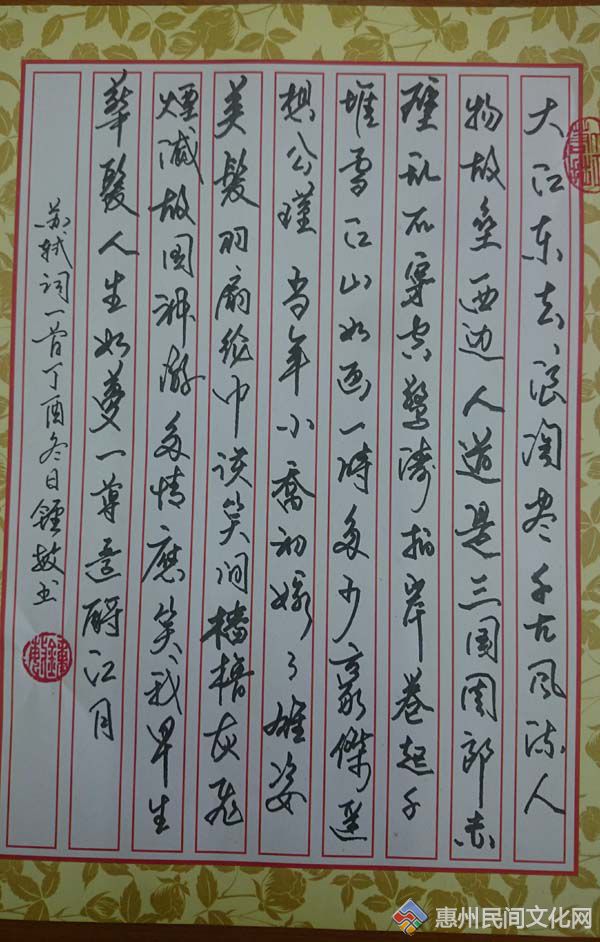 大江东去浪淘尽千古风流人
物故垒西边人道是三国周郎赤
壁乱石穿空惊涛拍岸卷起千
堆雪江山如画一时多少豪傑遥
想公瑾当年小喬初嫁了雄姿
英发羽扇纶巾谈笑间檣櫓灰飞
煙滅故国神游多情應笑我早生
華髮人生如夢一尊还酹江月
苏轼词一首丁酉冬日鍾敏书
惠州民间文化网